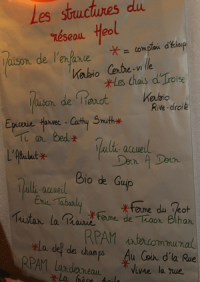 Les structures du
réseau Heol
* = comptoir d'échange
Maison de l'enfance
Kerbio Centre-ville
* Les chais d'Iroise
Maison de Pierrot
Kerbio
Rive-droite
Epicerie Harnec - Cathy Smith *
Ti ar Bed *
L'Atribut *
Multi-accueil
Dorn A Dorn
Bio de Gujo
Multi-accueil
Eric Tabarly
* Ferme du
Tristan La Prairie
* Ferme de Traon Bihan
RPAM intercommunal
* La clef des champs
* Au Coin d'la Rue
RPAM Landerneau
* Vivre la rue